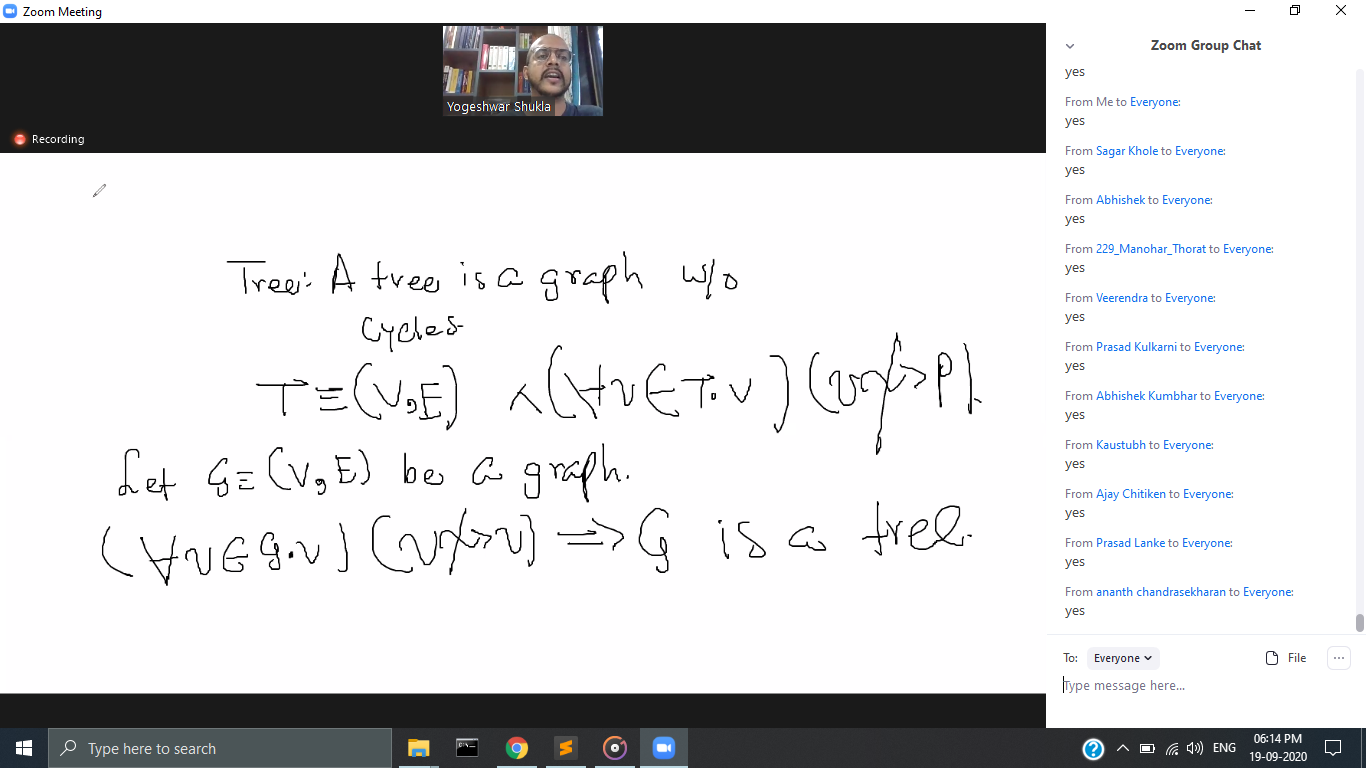 Zoom Meeting
Yogeshwar Shukla
Recording
Tree: A tree is a graph w/o
cycles.
T ≡ (V, E) ∧ (∀v ∈ T.V) (v ⇝̸ P).
Let G ≡ (V, E) be a graph.
(∀v ∈ G.V) (v ⇝̸ v) ⇒ G is a tree.
Zoom Group Chat
yes
From Me to Everyone:
yes
From Sagar Khole to Everyone:
yes
From Abhishek to Everyone:
yes
From 229_Manohar_Thorat to Everyone:
yes
From Veerendra to Everyone:
yes
From Prasad Kulkarni to Everyone:
yes
From Abhishek Kumbhar to Everyone:
yes
From Kaustubh to Everyone:
yes
From Ajay Chitiken to Everyone:
yes
From Prasad Lanke to Everyone:
yes
From ananth chandrasekharan to Everyone:
yes
To: Everyone File
Type message here...
Type here to search
ENG
06:14 PM
19-09-2020